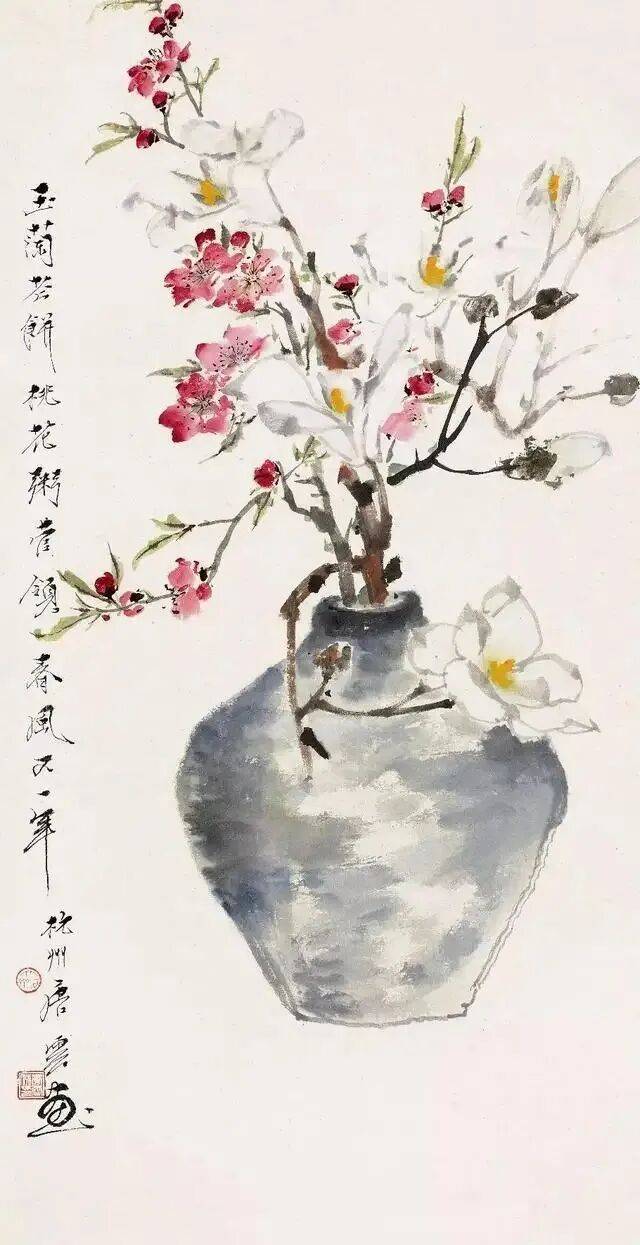 玉蘭花餅桃花粥管領春風又一年
杭州唐雲画